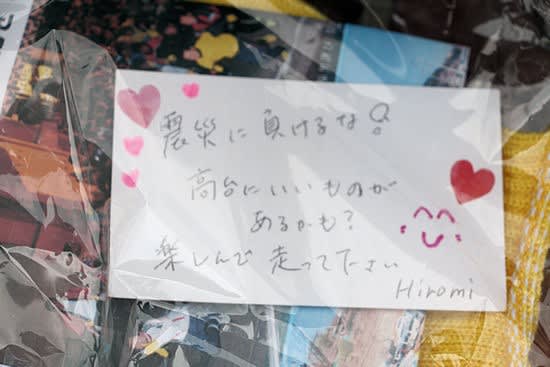 震災に負けるな!
高台にいいものが
あるかも?
楽しんで走って下さい
Hiromi